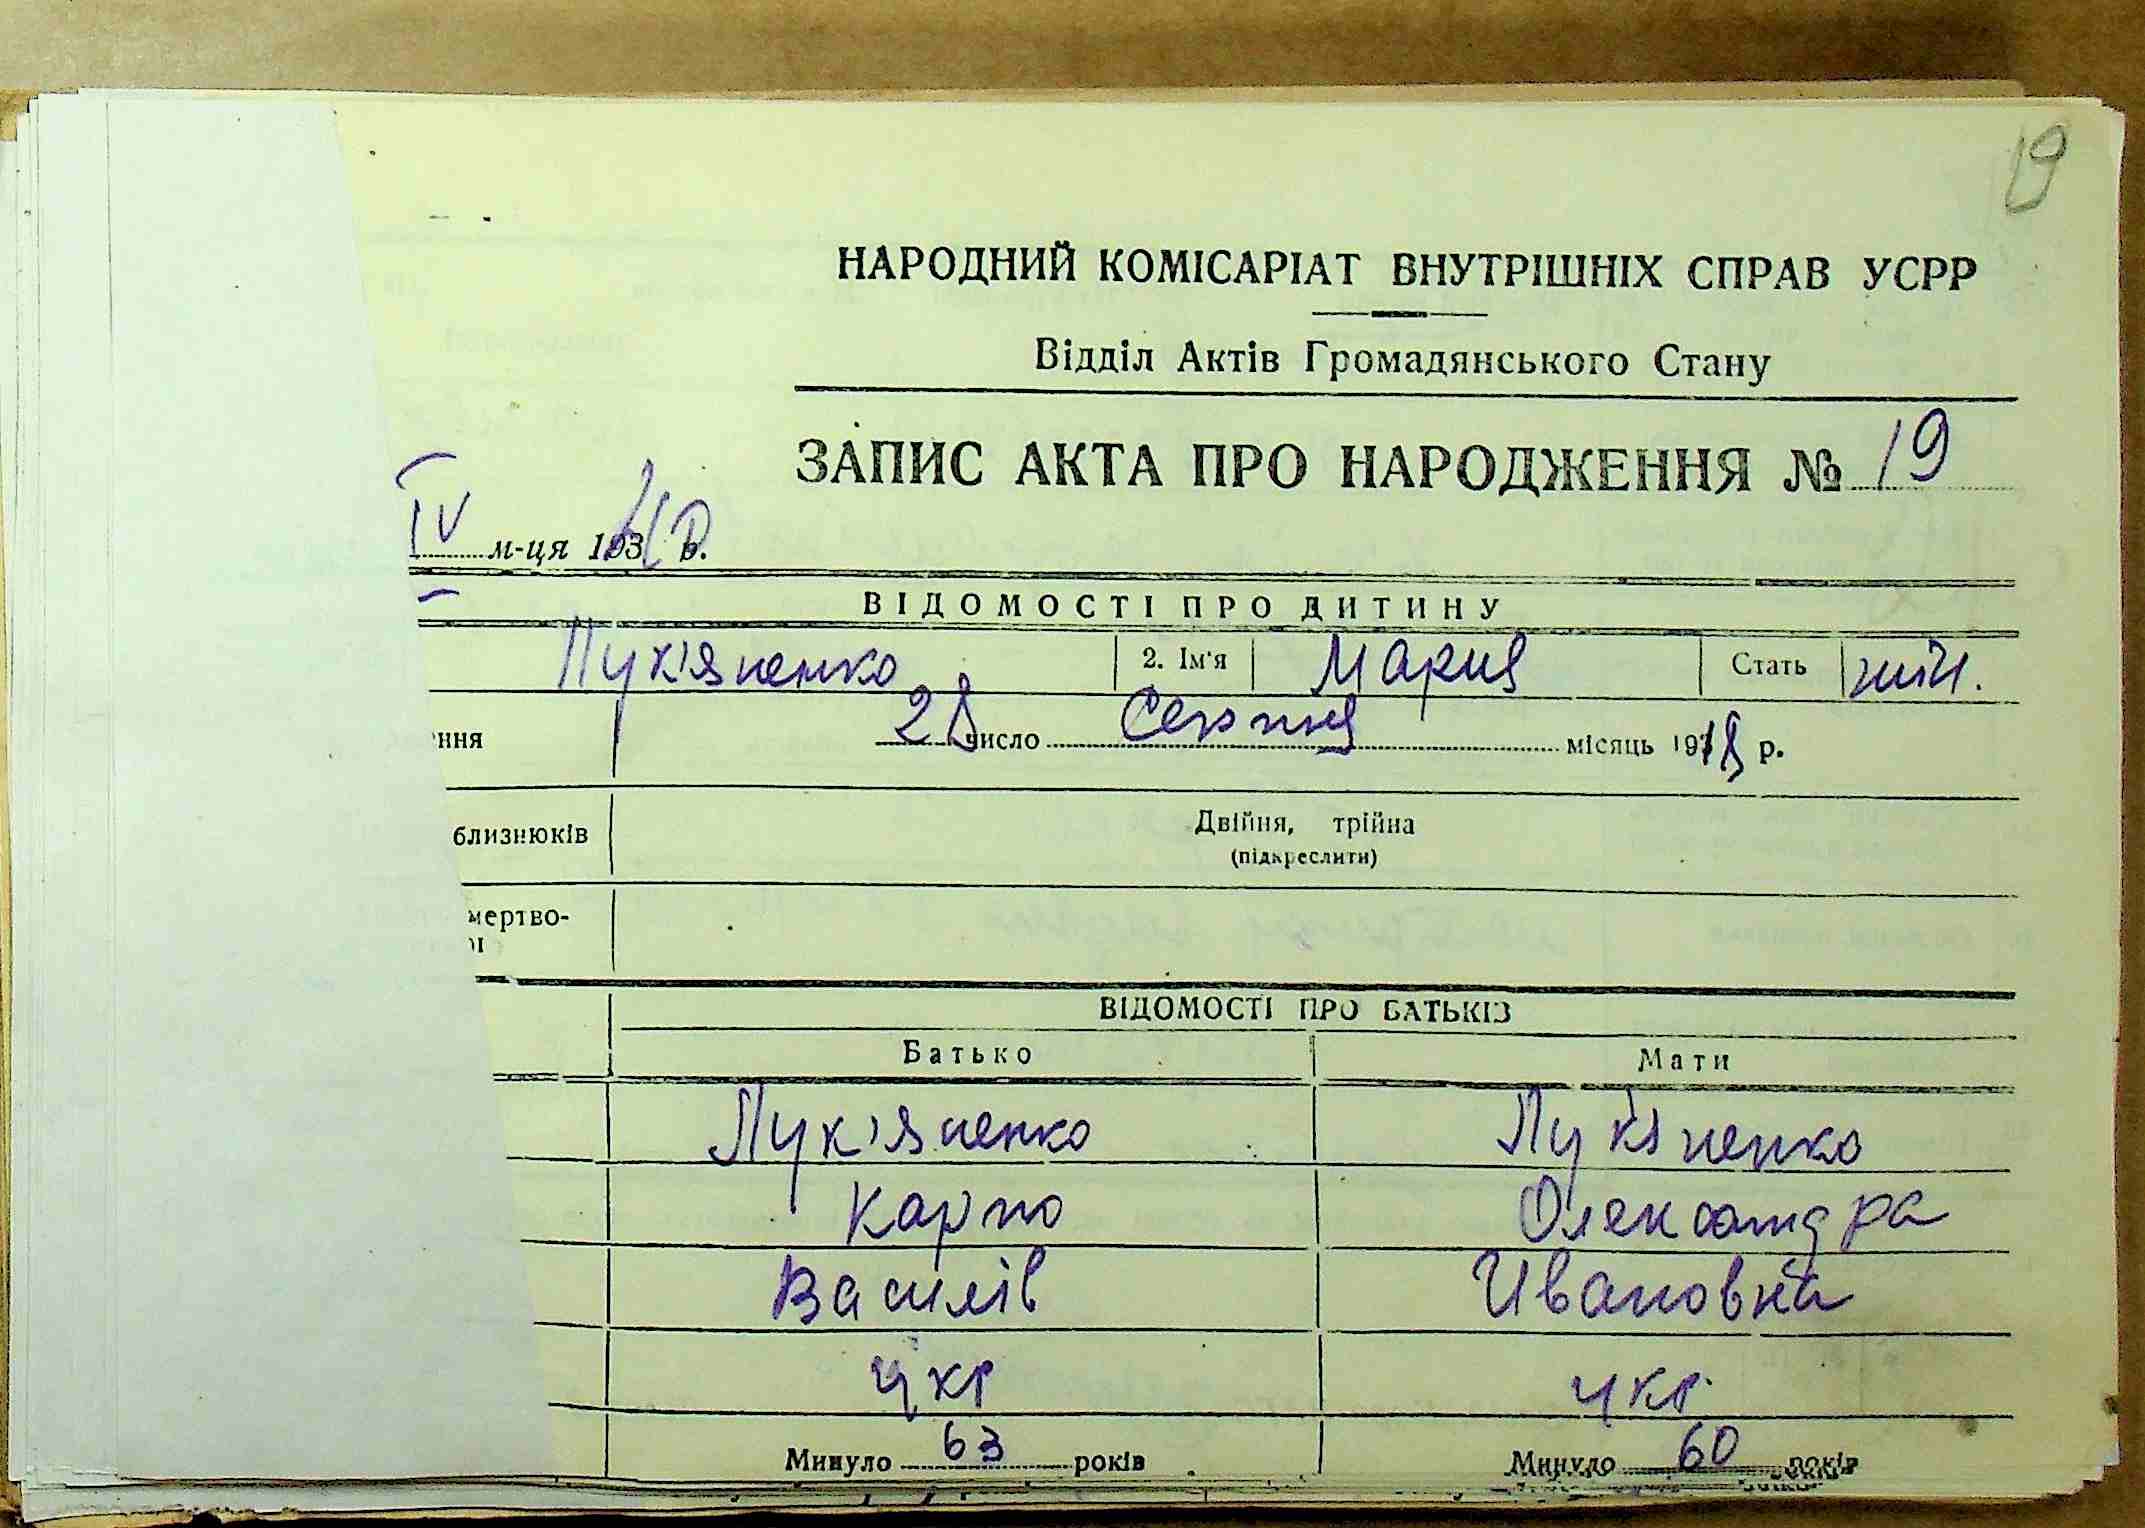 19
НАРОДНИЙ КОМІСАРІАТ ВНУТРІШНІХ СПРАВ УСРР
Відділ Актів Громадянського Стану
ЗАПИС АКТА ПРО НАРОДЖЕННЯ № 19
IV м-ця 193 р.
ВІДОМОСТІ ПРО ДИТИНУ
Лук'яненко 2. Ім'я Мария Стать жін.
ння 28 число Серпня місяць 1918 р.
близнюків Двійня, трійна
(підкреслити)
мертво-
ВІДОМОСТІ ПРО БАТЬКІВ
Батько Мати
Лук'яненко Лук'яненко
Карпо Олександра
Василів Ивановна
укр укр.
Минуло 63 років Минуло 60 років